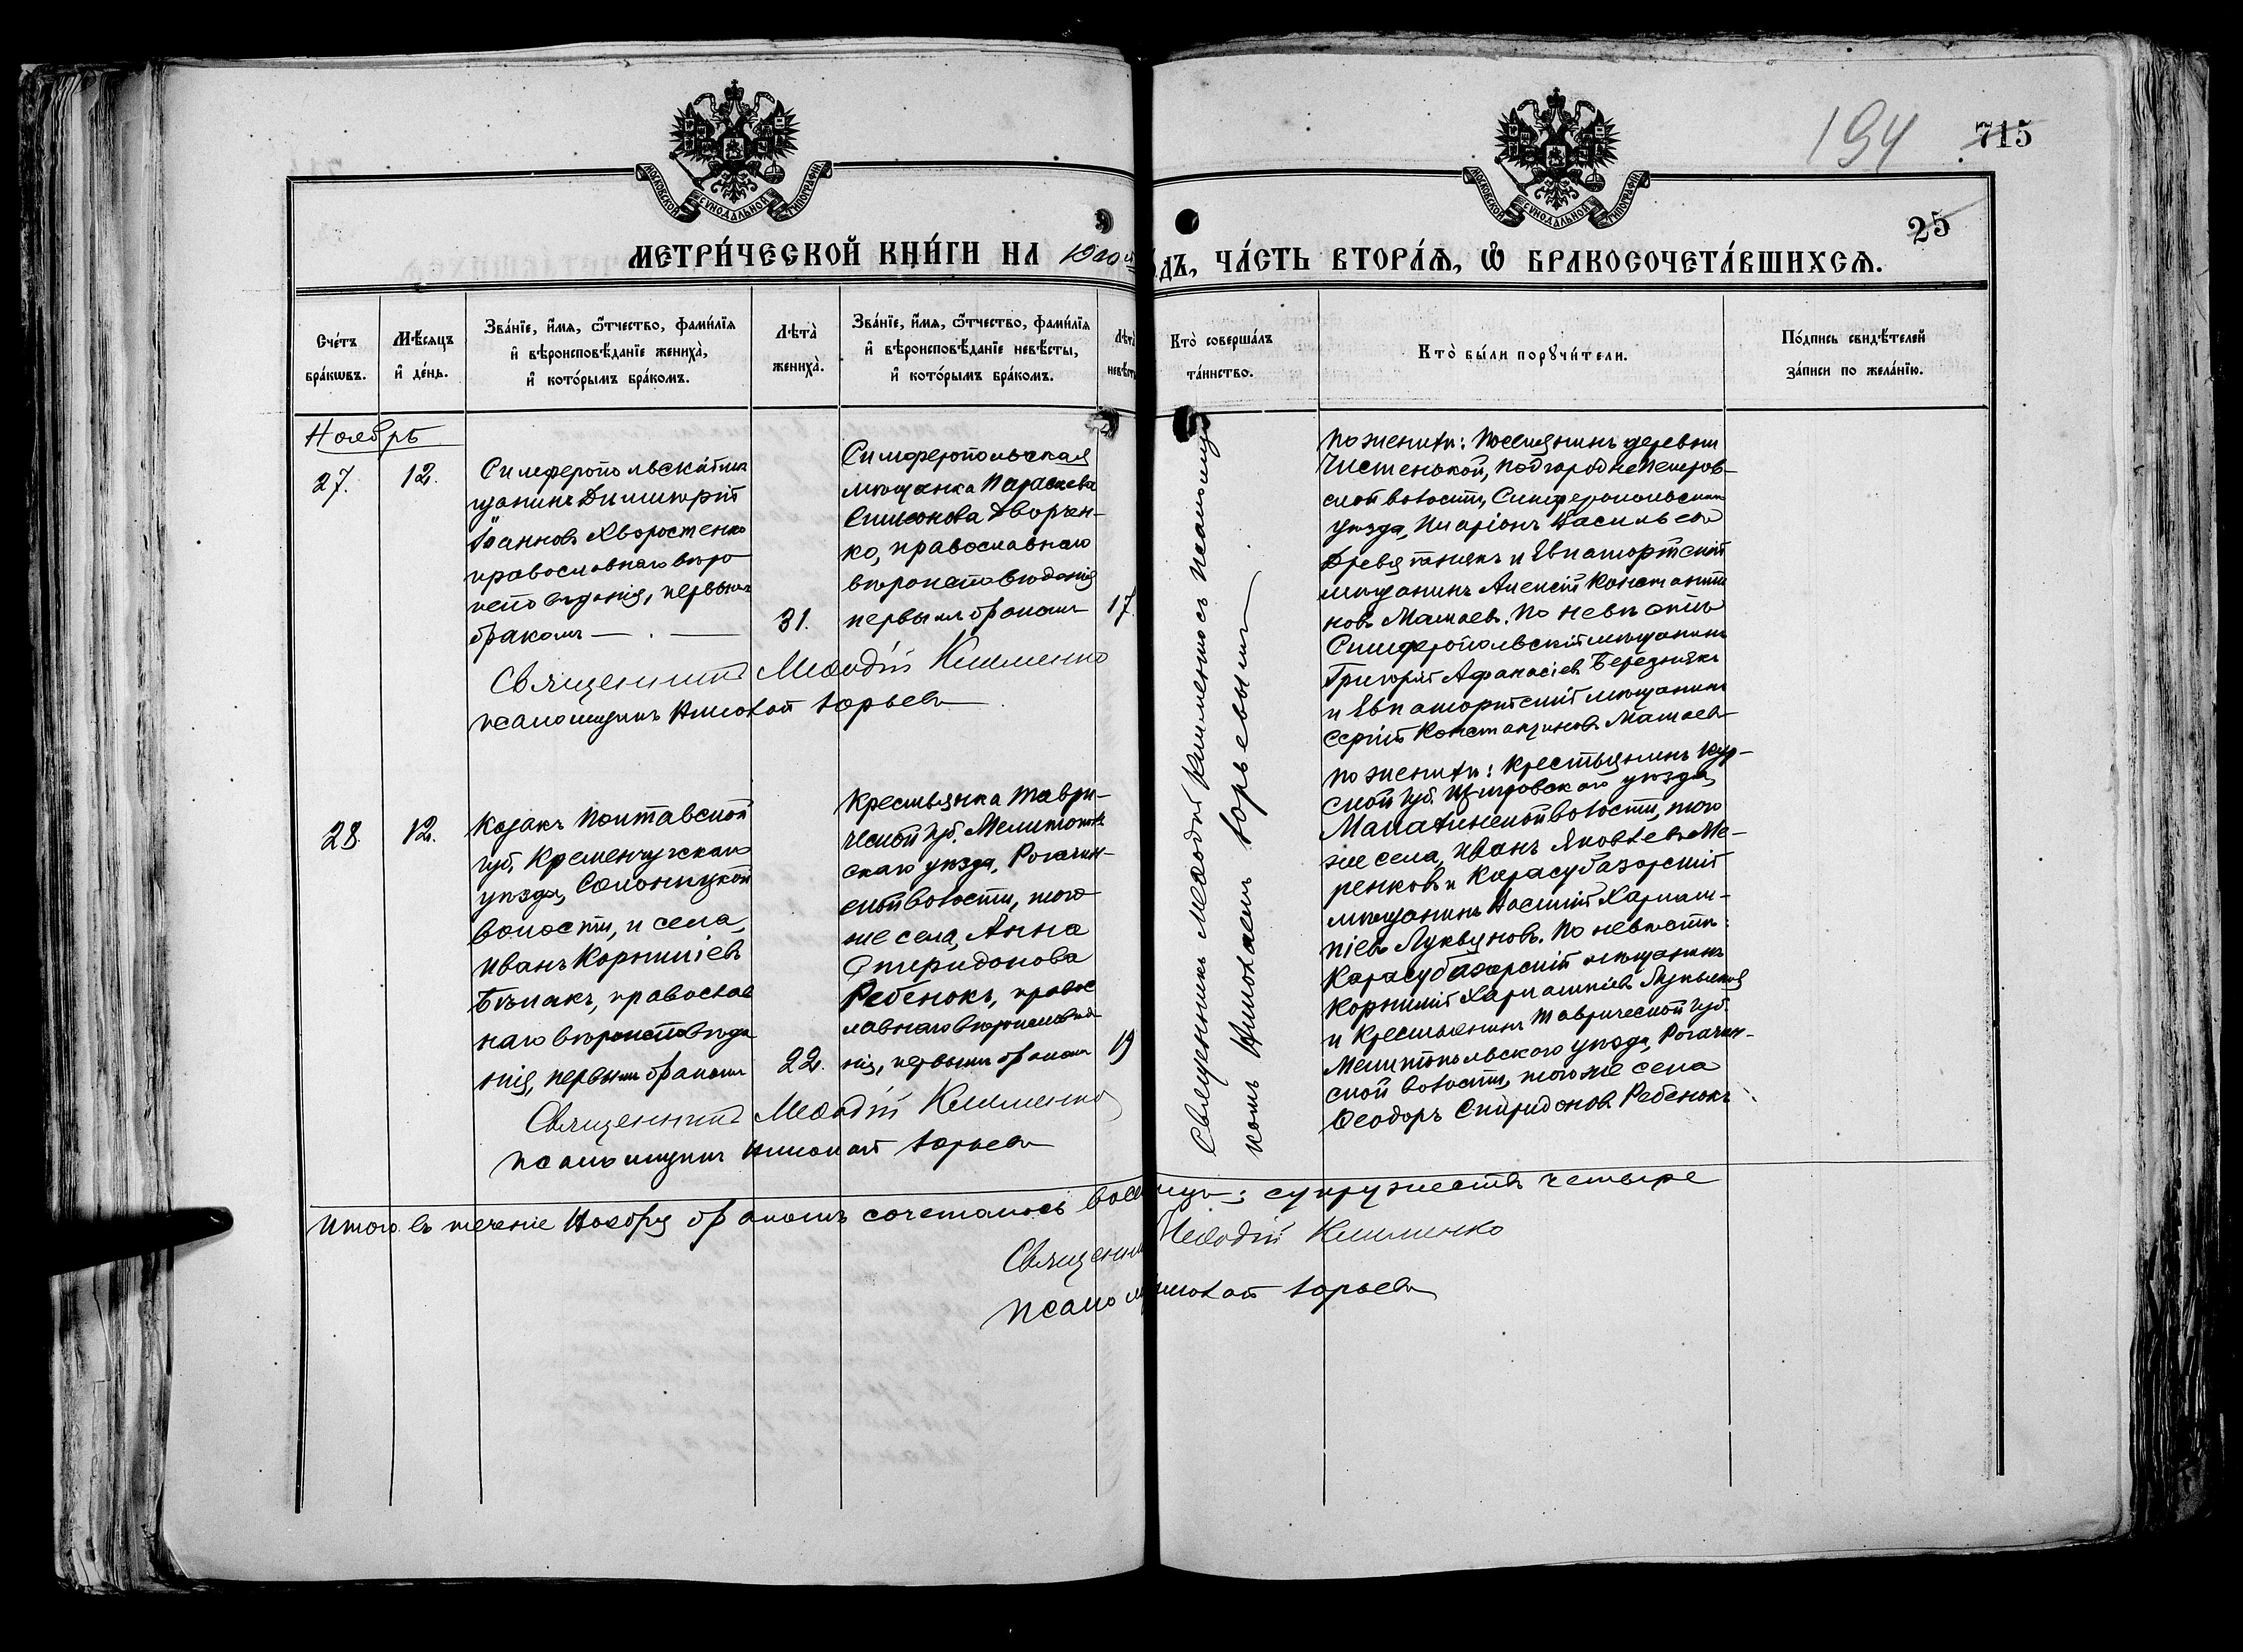 194
715
МОСКОВСКОЙ СѴНОДАЛЬНОЙ ТИПОГРАФІИ
МОСКОВСКОЙ СѴНОДАЛЬНОЙ ТИПОГРАФІИ
25
МЕТРИ́ЧЕСКОЙ КНИ́ГИ НА
ДЪ, ЧА́СТЬ ВТОРА́Ѧ, Ѡ҆ БРАКОСОЧЕТА́ВШИХСѦ.
Сче́тъ бра́кѡвъ.
Мѣ́сѧцъ и҆ де́нь.
Зва́нїе, и҆́мѧ, ѻ҆́тчество, фами́лїѧ и҆ вѣроисповѣ́данїе жениха̀, и҆ кото́рымъ бра́комъ.
Лѣта̀ жениха̀.
Зва́нїе, и҆́мѧ, ѻ҆́тчество, фами́лїѧ и҆ вѣроисповѣ́данїе невѣ́сты, и҆ кото́рымъ бра́комъ.
Лѣта̀ невѣ́сты
Кто̀ соверша́лъ та́инство.
Кто̀ бы́ли порꙋчи́тели.
По́дпись свидѣ́телей за́писи по жела́нїю.
Ноябрь
27.
12.
Симферопольскій мѣ
щанинъ Димитрій
Іоанновъ Хворостенко
православнаго вѣро
исповѣданія, первымъ
бракомъ
31.
Симферопольская
мѣщанка Параскева
Симеонова Дворчен-
ко, православнаго
вѣроисповѣданія
первымъ бракомъ
17.
Священникъ Меѳодій Клименко
псаломщикъ Николай Юрьевъ
Священникъ Меѳодій Клименко съ псаломщи
комъ Николаемъ Юрьевымъ
По женихѣ: Поселянинъ деревни
Чистенькой, Подгородне-Петров-
ской волости, Симферопольскаго
уѣзда, Иларіонъ Васильевъ
Древятнякъ и Евпаторійскій
мѣщанинъ Алексій Константи
новъ Матаевъ. По невѣстѣ
Симферопольскій мѣщанинъ
Григорій Афанасіевъ Березнякъ
и Евпаторійскій мѣщанинъ
Сергій Константиновъ Матаевъ
28.
12.
Козакъ Полтавской
губ. Кременчугскаго
уѣзда, Солоницкой
волости, и села,
Иванъ Корниліевъ
Бѣлакъ, православ
наго вѣроисповѣда
нія, первымъ бракомъ
22.
Крестьянка Таври-
ческой губ. Мелитополь
скаго уѣзда, Рогачин-
ской волости, того
же села, Анна
Спиридонова
Ребенокъ, правос
лавнаго вѣроисповѣда
нія, первымъ бракомъ
19
Священникъ Меѳодій Клименко
псаломщикъ Николай Юрьевъ
По женихѣ: Крестьянинъ Кур-
ской губ. Щигровскаго уѣзда,
волости, того
же села, Иванъ Яковлевъ Ме-
ренковъ и Карасубазарскій
мѣщанинъ Василій Харлам-
піевъ Лукьяновъ. По невѣстѣ:
Карасубазарскій мѣщанинъ
Корнилій Харлампіевъ Лукьяновъ
и Крестьянинъ Таврической губ.
Мелитопольскаго уѣзда, Рогачин-
ской волости, того же села
Ѳеодоръ Спиридоновъ Ребенокъ
Итого въ теченіе Ноября бракомъ сочеталось супружествъ четыре
Меѳодій Клименко
Юрьевъ